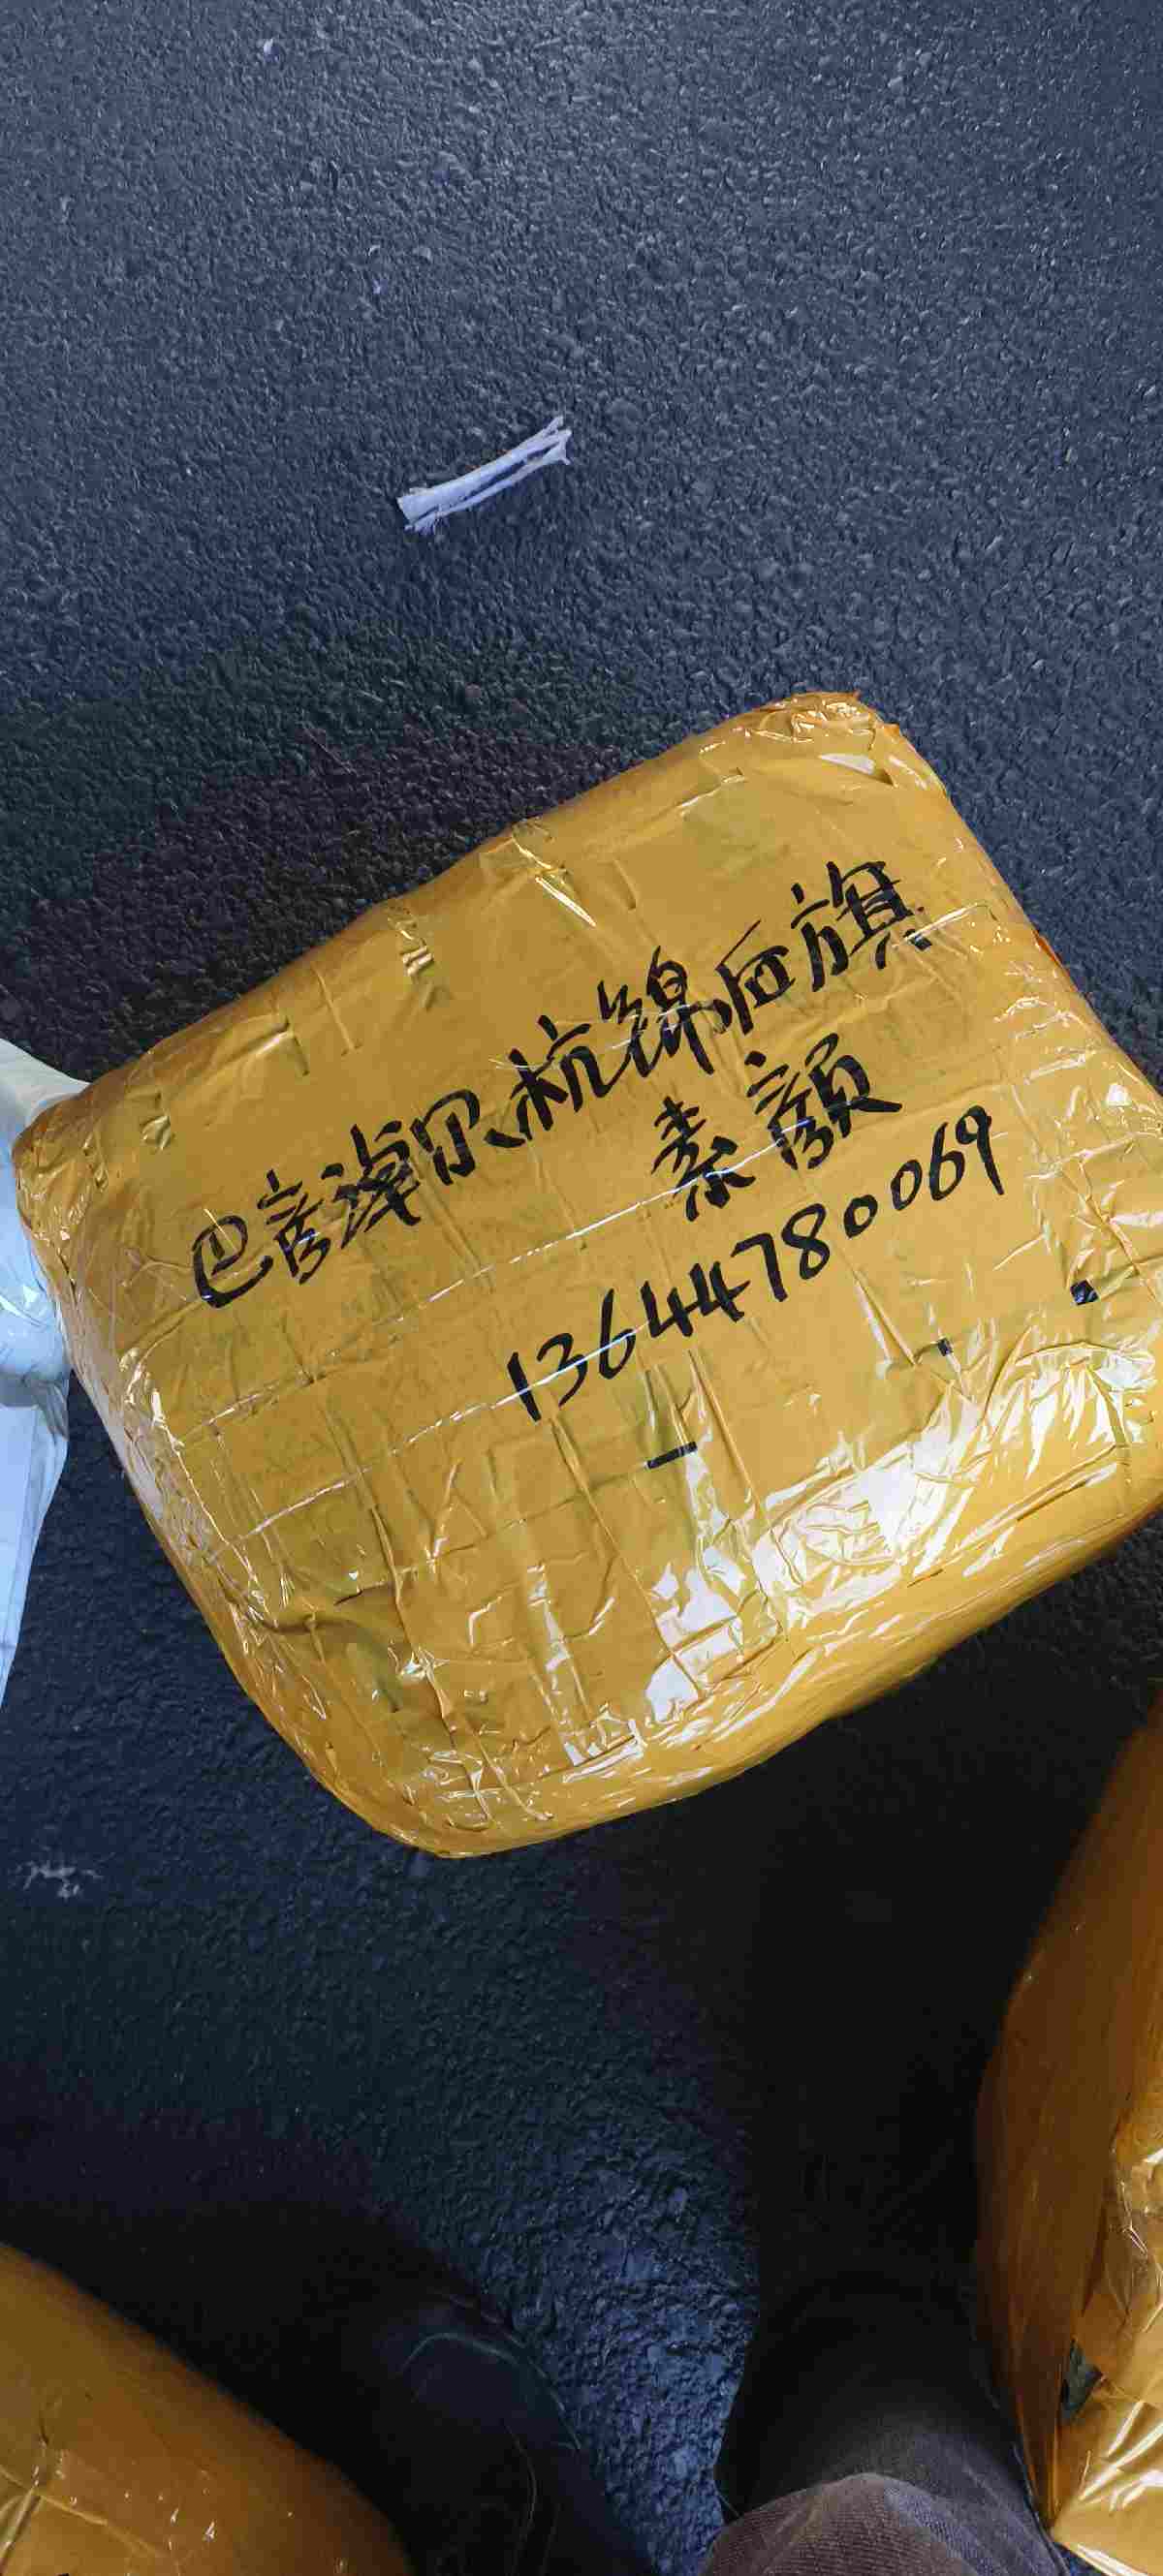 巴音淖尔杭锦后旗
素颜
13644780069